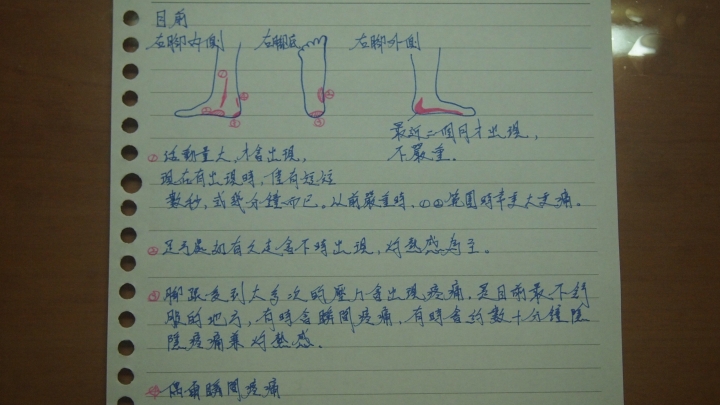 目前
右腳內側 右腳底 右腳外側
最近二個月才出現,
不嚴重.
① 活動量大,才會出現,
現在有出現時,僅有短短
數秒,或幾分鐘而已。以前嚴重時,①②範圍時常
② 足弓處如有久走會不時出現,灼熱感為主。
③ 腳跟受到太多次的壓力會出現疼痛,是目前最不舒
服的地方,有時會瞬間疼痛,有時會約數十分鐘隱
隱疼痛兼灼熱感.
④ 偶爾瞬間疼痛